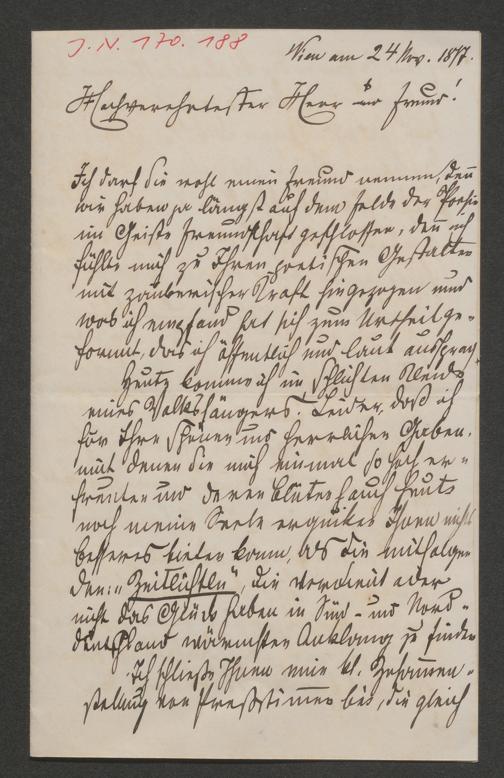 J. N. 170. 188
Wien am 24 Nov. 187.
Hochverehrtester Herr und Freund!
Ich darf Sie wohl einen Freund nennen, denn
wir haben ja längst auf dem Felde der Poesie
im Geiste Freundschaft geschlossen, denn ich
fühlte mich zu Ihren poetischen Gestalten
mit zauberischer Kraft hingezogen und
was ich empfand hat sich zum Urtheil ge-
formt, das ich öffentlich und laut aussprach.
Heute komme ich im schlichten Kleide
eines Volkssängers. Leider, daß ich
für Ihre schönen und herrlichen Gaben,
mit denen Sie mich einmal so hoch er-
freuten und deren Blütenhauch heute
noch meine Seele erquickt Ihnen nichts
besseres bieten kann, als die mitfolgen
den: "Zeitlichtln", die verdient oder
nicht das Glück haben in Süd- und Nord-
deutschland wärmsten Anklang zu finden
Ich schließe Ihnen eine kl. Zusammen-
stellung von Preßstimmen bei, die gleich